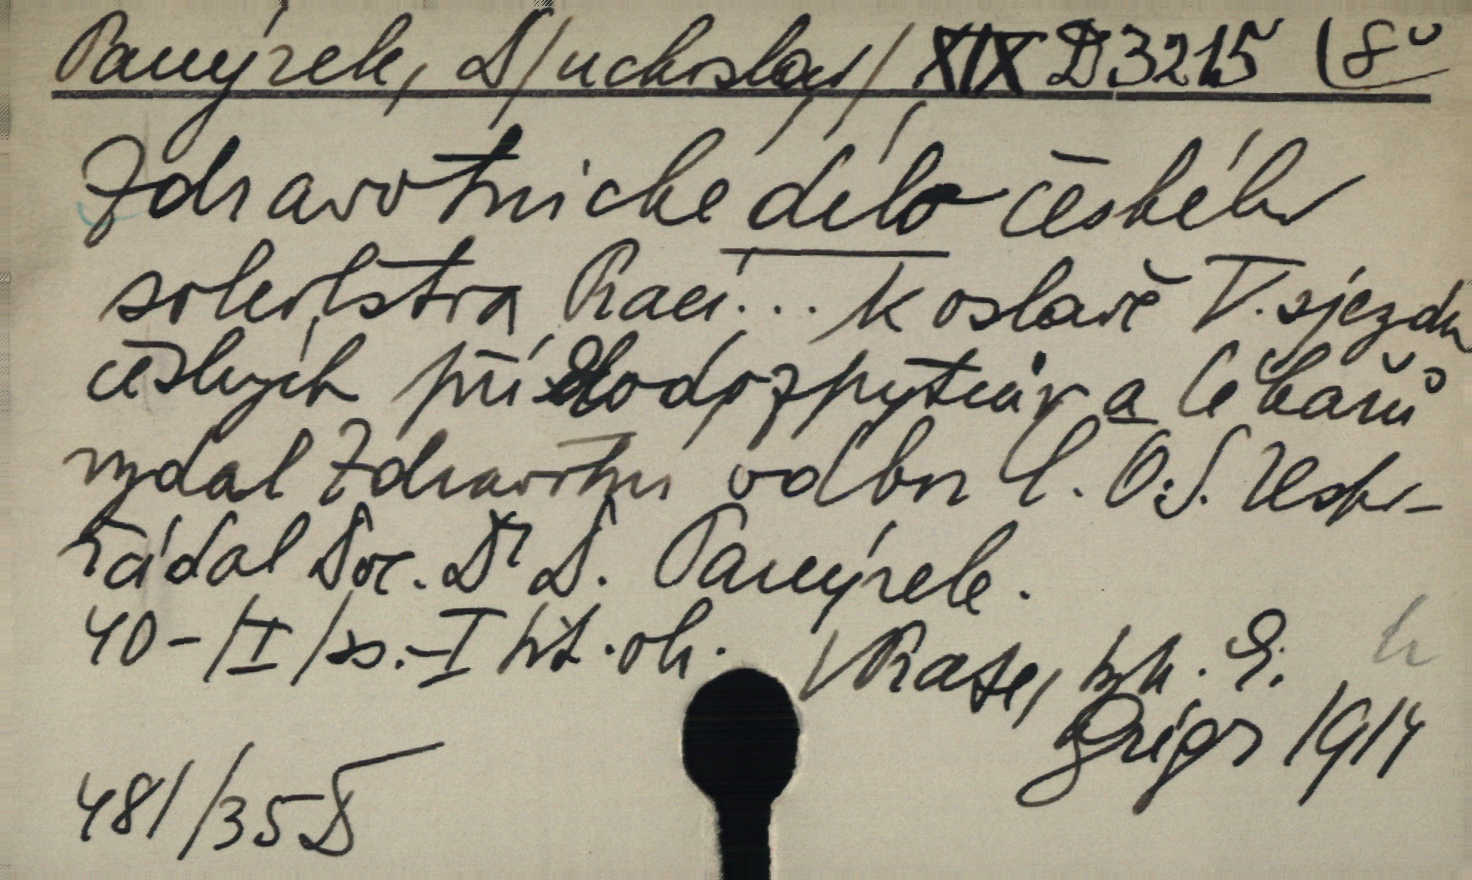 Panýrek, D/uchoslav/ XIX D 3215 (8°
Zdravotnické dílo českého
sokolstva Prací... K oslavě V. sjezdu
českých přírodozpytcův a lékařů
vydal Zdravotní odbor Č. O. S. Uspo-
řádal Doc. Dr D. Panýrek.
40-/II/ss.-I tit. ob.
V Praze, tisk. E.
Grégr 1914
481/35 D